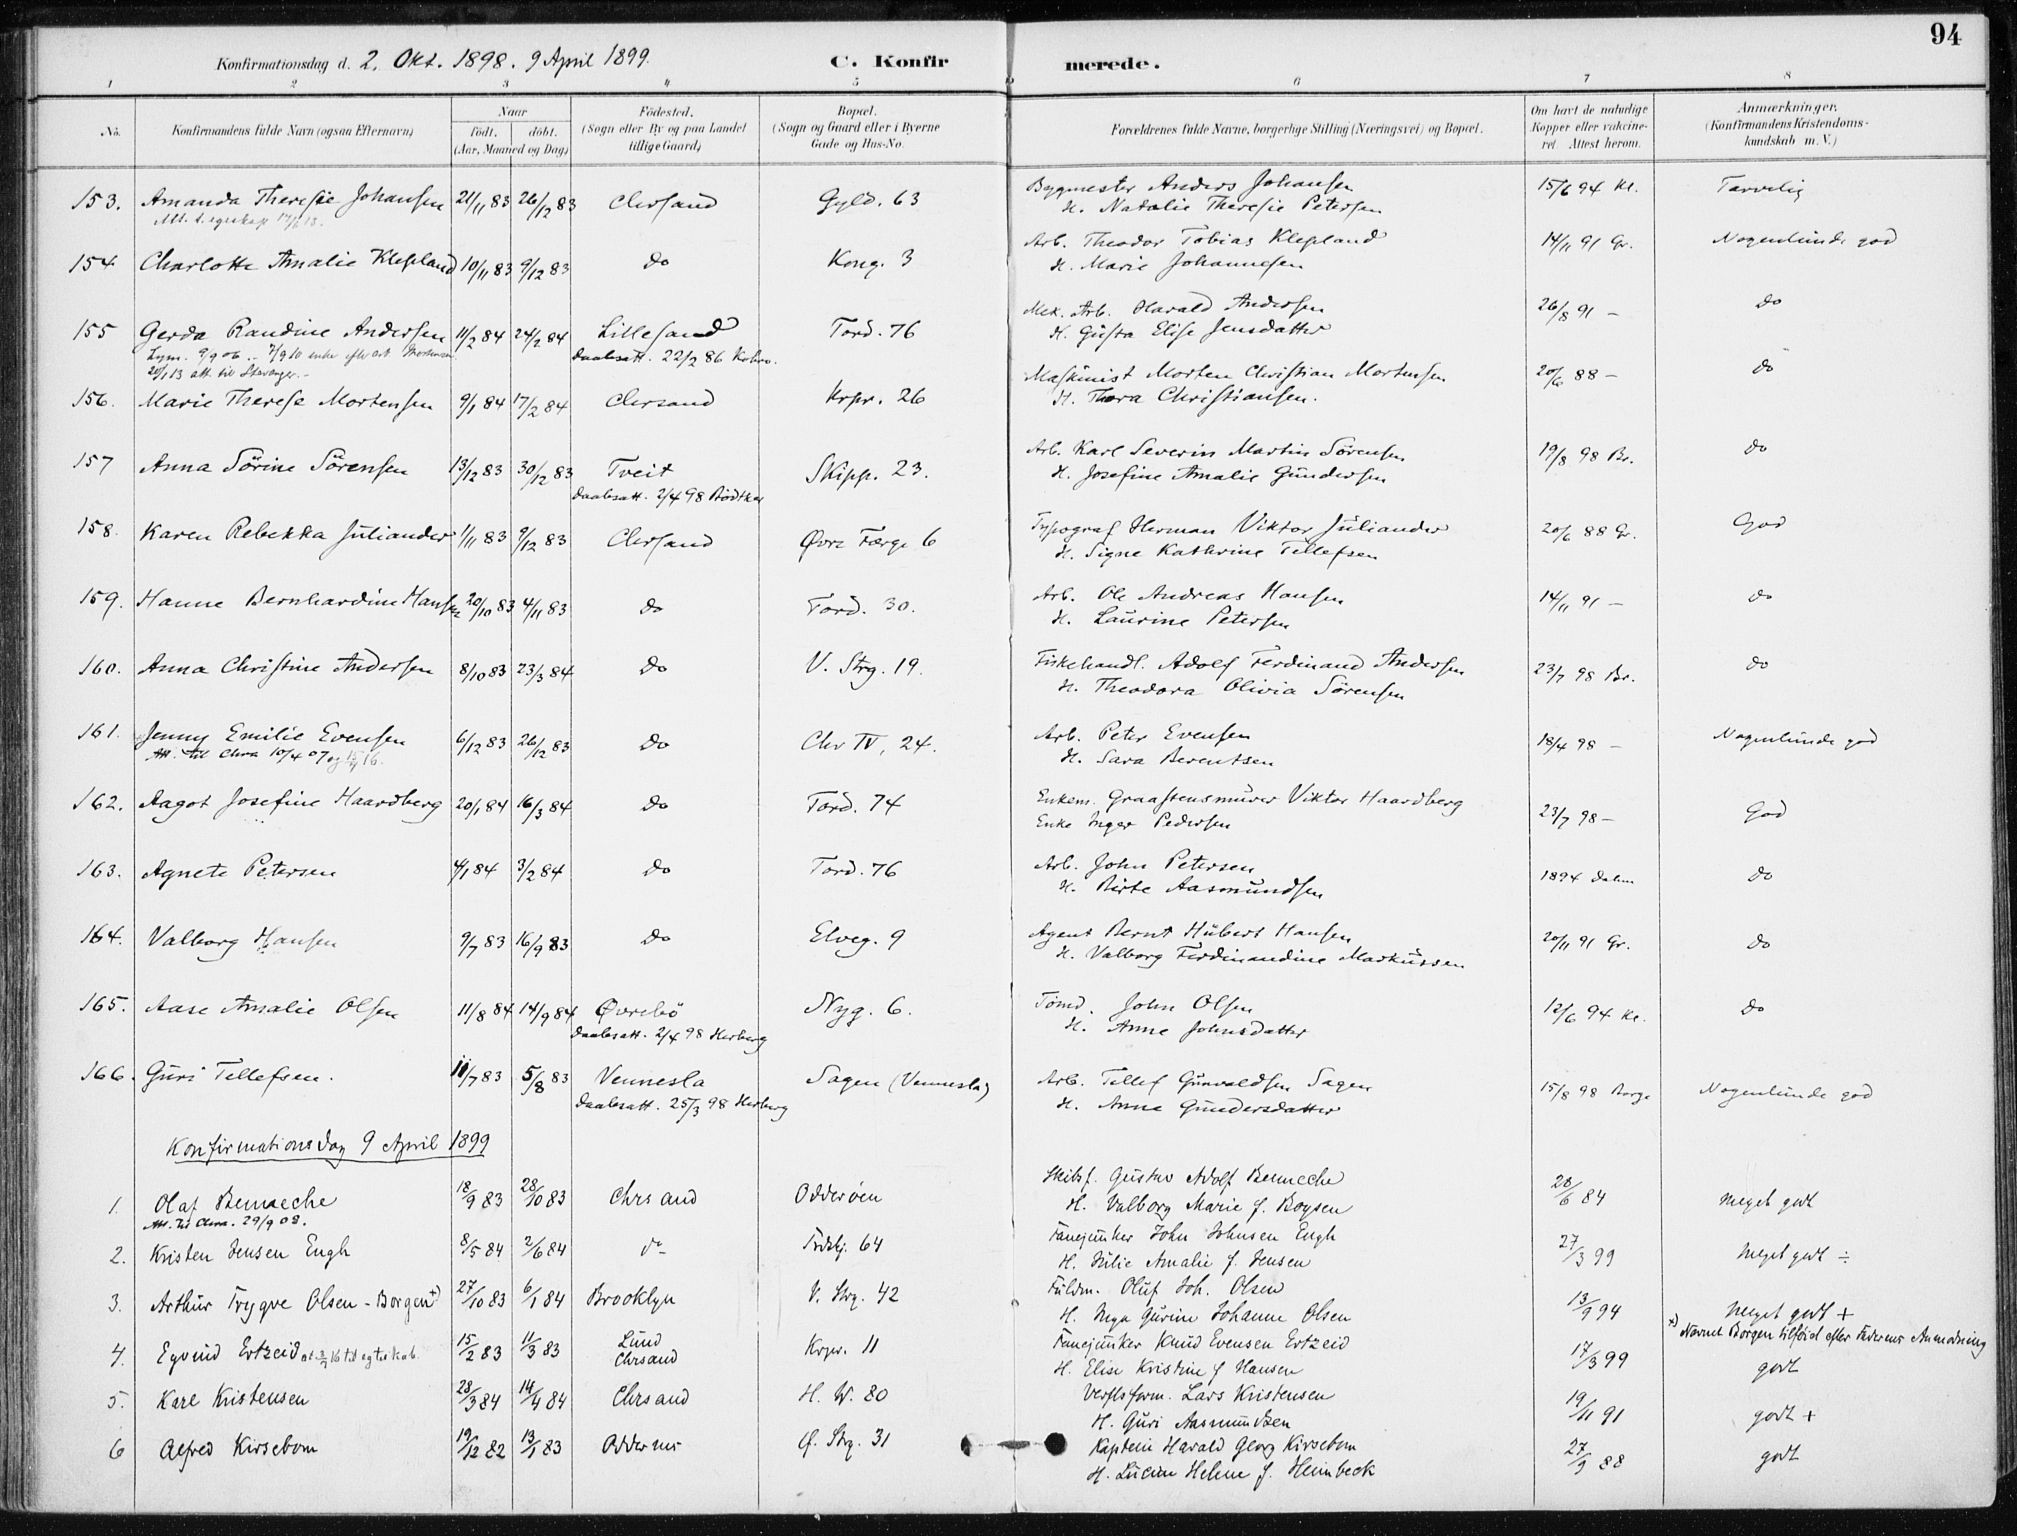 94
Konfirmationsdag d. 2. Okt. 1898. 9 April 1899. C. Konfirmerede.
1 2 3 4 5 6 7 8
No. Konfirmandens fulde Navn (ogsaa Efternavn) Naar født. døbt. (Aar, Maaned og Dag) Fødested. (Sogn eller By og paa Landet tillige Gaard) Bopæl. (Sogn og Gaard eller i Byerne Gade og Hus-No. Forældrenes fulde Navne, borgerlige Stilling (Næringsvei) og Bopæl. Om havt de naturlige Kopper eller vakcineret Attest herom. Anmærkninger. (Konfirmandens Kristendomskundskab m. V.)
153. Amanda Theresie Johansen 21/11 83 26/12 83 Chrsand Gyld. 63 Bygmester Anders Johansen 15/6 94 Kl. Tarvelig
H. Natalie Theresie Petersen
154. Charlotte Amalie Klepland 10/11 83 9/12 83 do Kong. 3 Arb. Theodor Tobias Klepland 14/11 91 Gr. Nogenlunde god
H. Marie Johannesen
155 Gerda Randine Andersen 11/2 84 24/2 84 Lillesand Tord. 76 Mek. Arb. Harald Andersen 26/8 91 – do
20/1 13 att. til Stavanger. – Daabsatt. 22/2 86 H. Gusta Elise Jensdatter
156. Marie Therese Mortensen 9/1 84 17/2 84 Chrsand Krpr. 26 Maskinist Morten Christian Mortensen 20/6 88 – do
H. Thora Christiansen.
157 Anna Sörine Sörensen 13/12 83 30/12 83 Tveit Skipp. 23. Arb. Karl Severin Martin Sörensen 19/8 98 Br. do
Daabsatt. 2/4 98 Rödtker H. Josefine Amalie Gundersen
158. Karen Rebekka Juliander 1/11 83 9/12 83 Chrsand Øvre Færge 6 Typograf Herman Viktor Juliander 20/6 88 Gr. God
H. Signe Kathrine Tellefsen
159. Hanne Bernhardine Hansen 20/10 83 4/11 83 do Tord. 30. Arb. Ole Andreas Hansen 14/11 91 – do
H. Laurine Petersen
160. Anna Christine Andersen 8/10 83 23/3 84 do V. Strg. 19. Fiskehandl. Adolf Ferdinand Andersen 23/7 98 Br. do
H. Theodora Olivia Sörensen
161. Jenny Emilie Evensen 6/12 83 26/12 83 do Chr IV, 24. Arb. Peter Evensen 18/4 98 – Nogenlunde god
Att. til Chra 10/4 07 H. Sara Berentsen
162. Aagot Josefine Haardberg 20/1 84 16/3 84 do Tord. 74 Enkem. Graastensmurer Viktor Haardberg 23/7 98 – God
Enke Inger Pedersen
163. Agnete Petersen 4/1 84 3/2 84 do Tord. 76 Arb. John Petersen 1894 do
H. Birte Aasmundsen
164. Valborg Hansen 9/7 83 16/9 83 do Elveg. 9 Agent Bernt Hubert Hansen 20/11 91 Gr. do
H. Valborg Ferdinandine Markussen
165. Aase Amalie Olsen 11/8 84 14/9 84 Øvrebö Nyg. 6. Tömd. John Olsen 12/6 94 Kl. do
Daabsatt. 2/4 98 Herberg H. Anne Johnsdatter
166. Guri Tellefsen. 11/7 83 5/8 83 Vennesla Sagen (Vennesla) Arb. Tellef Gunvaldsen Sagen 15/8 98 Borge Nogenlunde god
Daabsatt. 25/3 98 Herberg H. Anne Gundersdatter
Konfirmationsdag 9 April 1899
1. Olaf Benneche 18/9 83 28/10 83 Chrsand Odderöen Skibsf. Gustav Adolf Benneche 28/6 84 Meget godt
Att. til Chra. 29/9 08. H. Valborg Marie f. Boysen
2. Kristen Jensen Engh 8/5 84 2/6 84 do 64 Fanejunker John Johnsen Engh 27/3 99 Meget godt ÷
H. Julie Amalie f. Jensen
3. Arthur Trygve Olsen - Borgen x) 27/10 83 6/1 84 Brooklyn V. Strg. 42 Fuldm. Oluf Joh. Olsen 13/9 94 Meget godt +
H. Inga Gurine Johanne Olsen x) Navnet Borgen tilföiet efter Faderens Anmodning
4. Eyvind Ertzeid 15/2 83 11/3 83 Lund Chrsand Krpr. 11 Fanejunker Knud Evensen Ertzeid 17/3 99 godt
H. Elise Kristine f. Hansen
5. Karl Kristensen 28/3 84 14/4 84 Chrsand H. W. 80 Verftsform. Lars Kristensen 19/11 91 godt +
H. Guri Aasmundsen
6 Alfred Kirsebom 19/12 82 13/5 83 Oddernes Ø. Strg. 31 Kaptein Harald Georg Kirsebom 27/9 88 godt
H. Lucine Helene f. Heimbeck